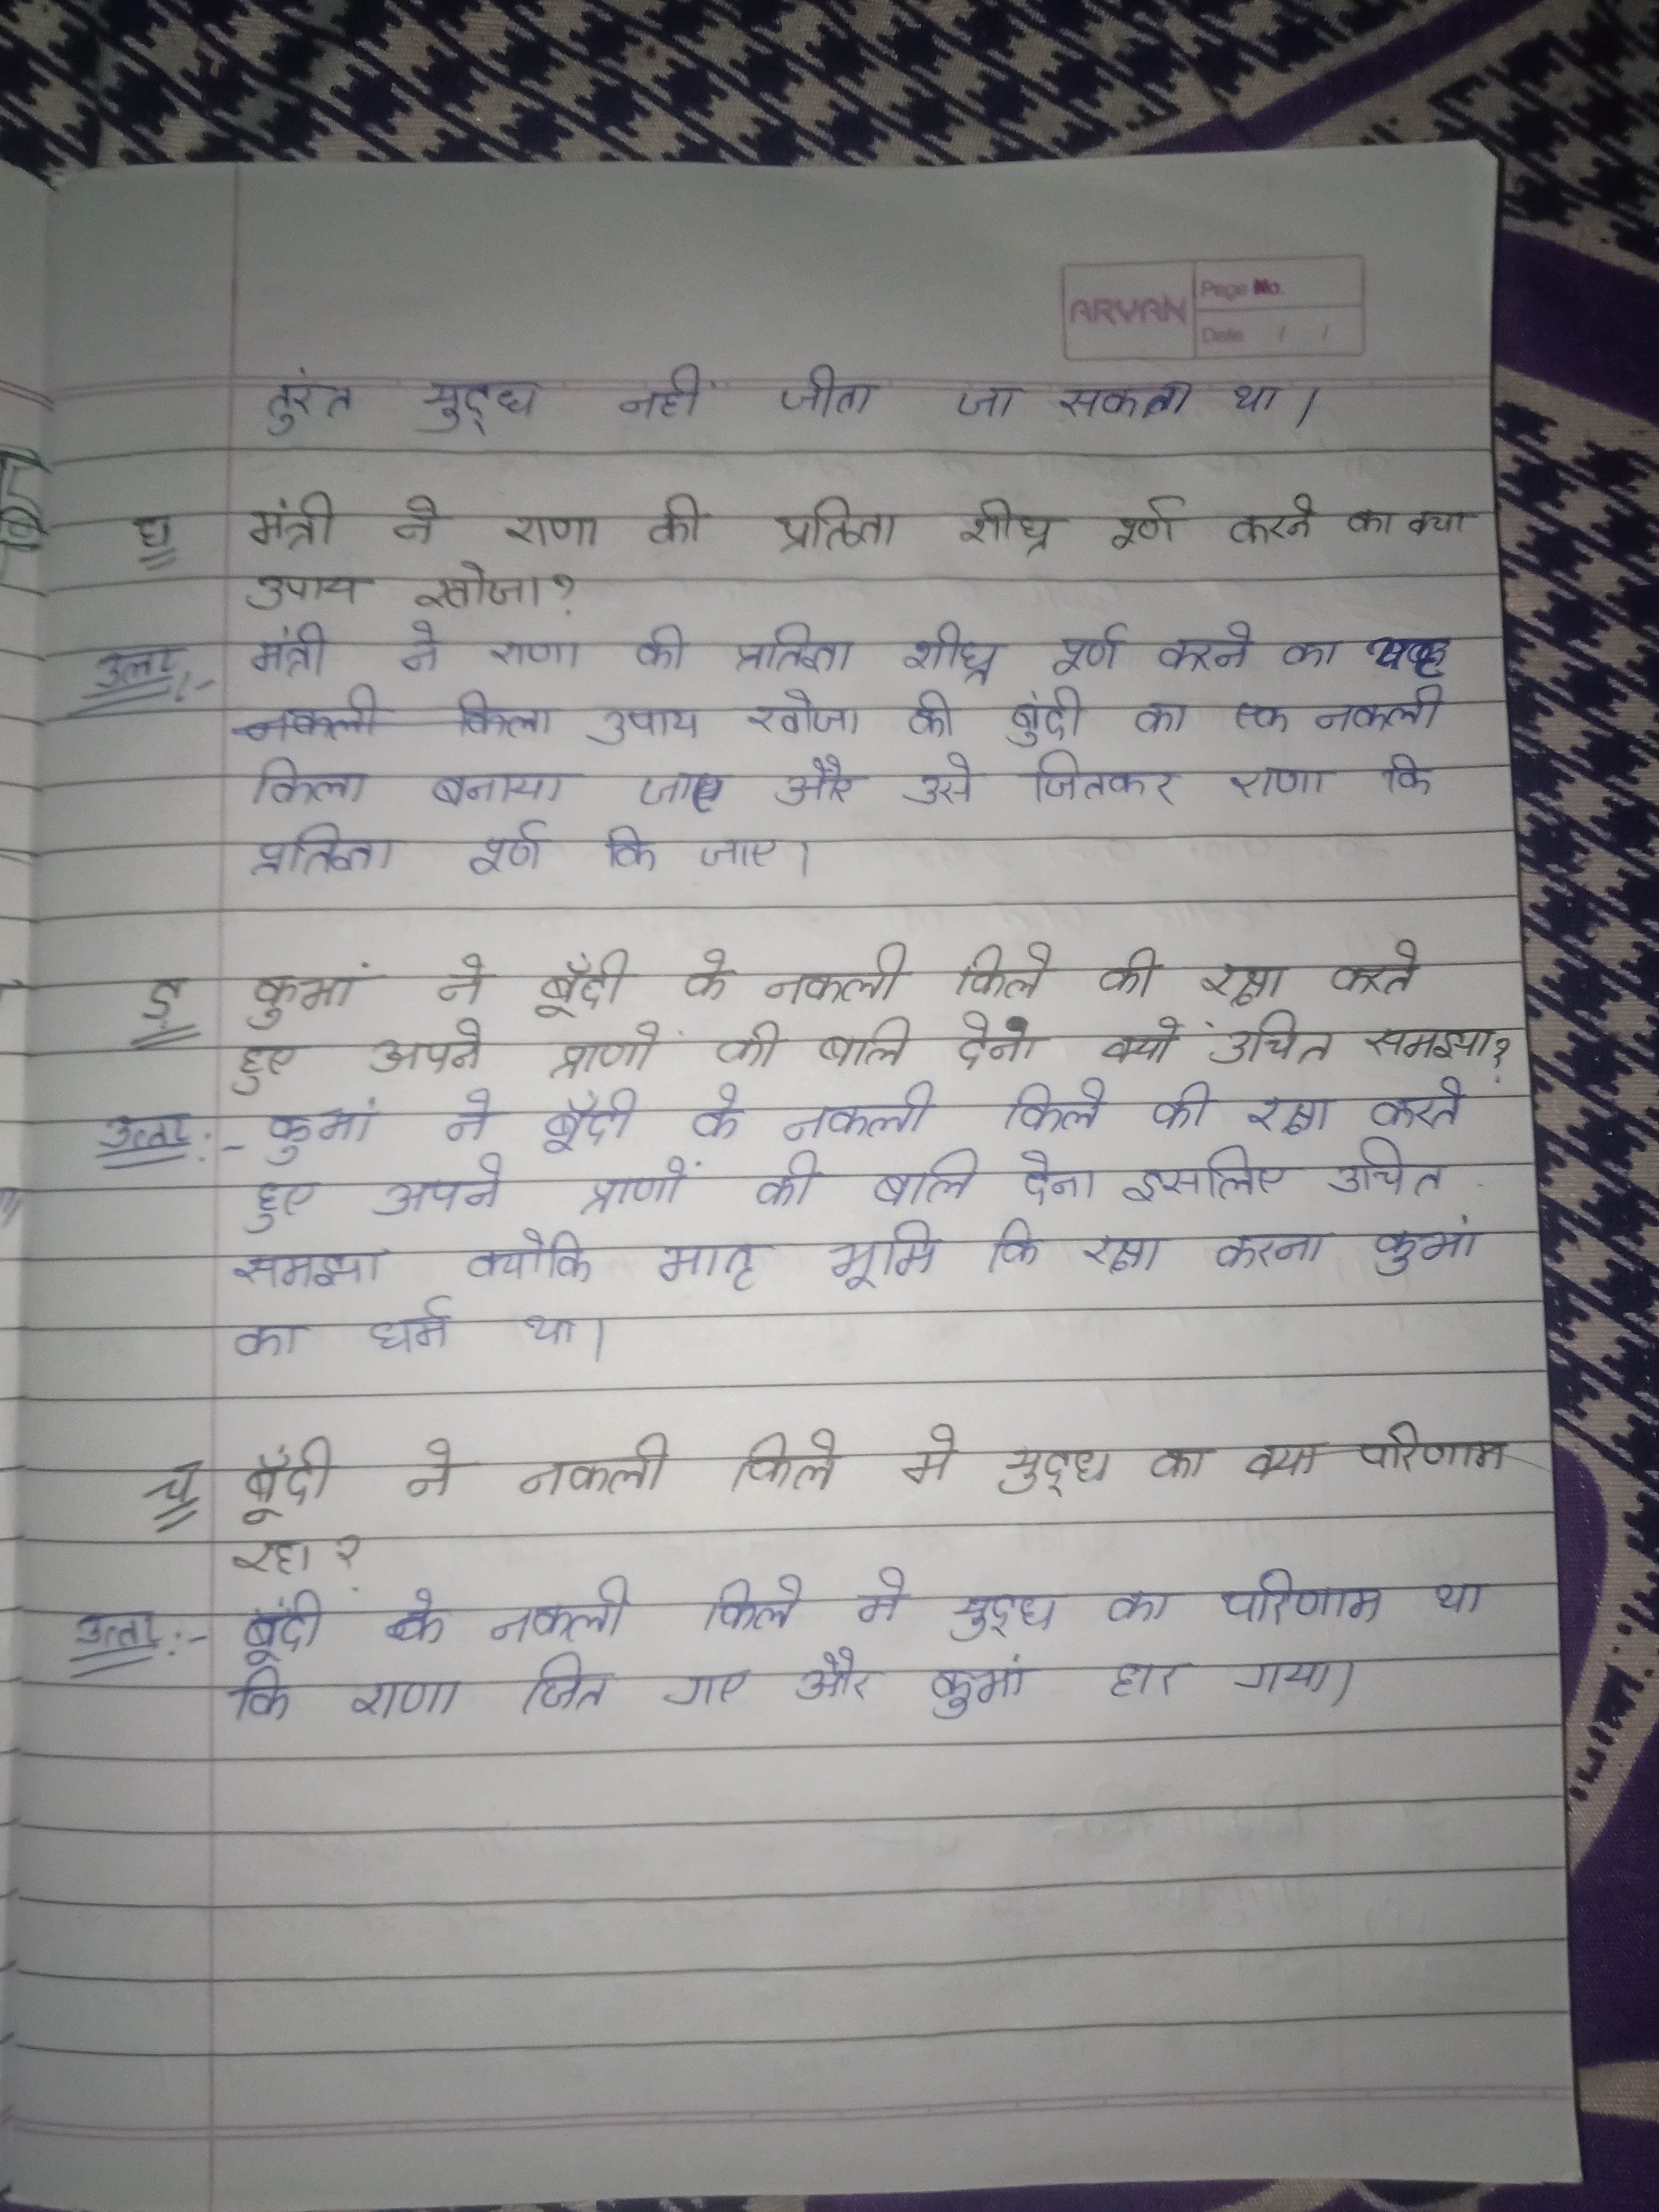 ARYAN
Page No.
Date / /
तुरंत युद्ध नहीं जीता जा सकता था।
घ मंत्री ने राणा की प्रतिज्ञा शीघ्र पूर्ण करने का क्या
उपाय खोजा?
उत्तर:- मंत्री ने राणा की प्रतिज्ञा शीघ्र पूर्ण करने का यह
नकली किला उपाय खोजा की बुंदी का एक नकली
किला बनाया जाए और उसे जितकर राणा कि
प्रतिज्ञा पूर्ण कि जाए।
ङ कुमां ने बूँदी के नकली किले की रक्षा करते
हुए अपने प्राणों की बलि देना क्यों उचित समझा?
उत्तर:- कुमां ने बूँदी के नकली किले की रक्षा करते
हुए अपने प्राणों की बलि देना इसलिए उचित
समझा क्योकि मातृ भूमि कि रक्षा करना कुमां
का धर्म था।
च बूँदी ने नकली किले मे युद्ध का क्या परिणाम
रहा?
उत्तर:- बूंदी के नकली किले मे युद्ध का परिणाम था
कि राणा जित गए और कुमां हार गया।